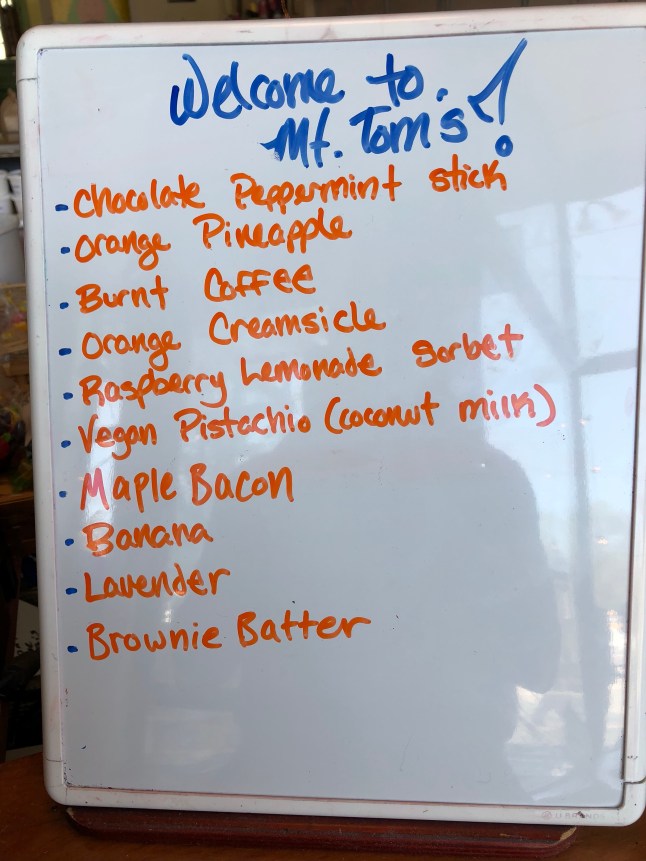 Welcome to
Mt. Tom's!
- Chocolate Peppermint stick
- Orange Pineapple
- Burnt Coffee
- Orange Creamsicle
- Raspberry Lemonade Sorbet
- Vegan Pistachio (coconut milk)
- Maple Bacon
- Banana
- Lavender
- Brownie Batter